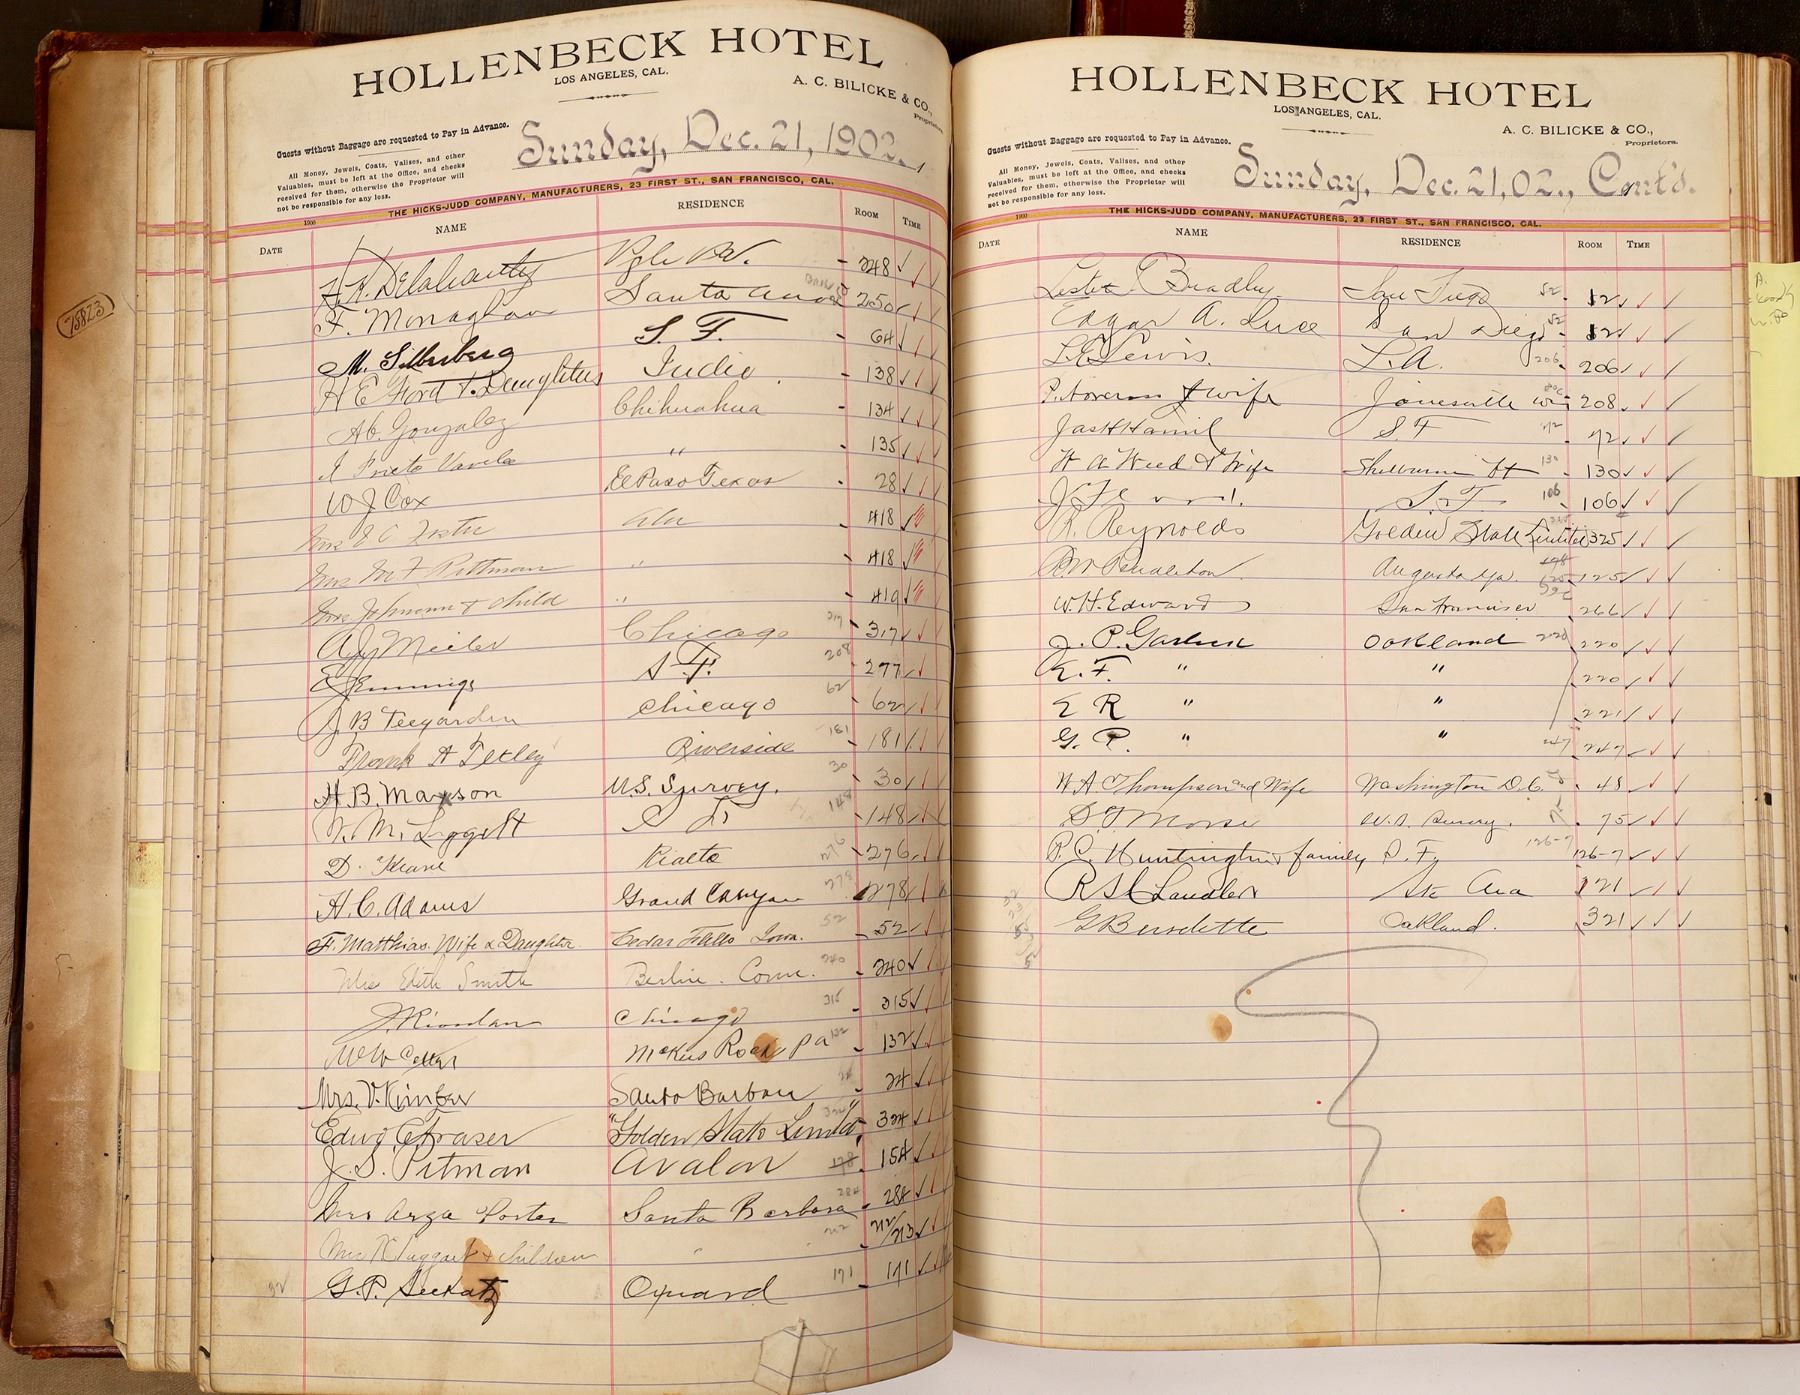 75823
HOLLENBECK HOTEL
LOS ANGELES, CAL.
A. C. BILICKE & CO.,
Proprietors.
Guests without Baggage are requested to Pay in Advance.
All Money, Jewels, Coats, Valises, and other
Valuables, must be left at the Office, and checks
received for them, otherwise the Proprietor will
not be responsible for any loss.
Sunday, Dec. 21, 1902.
THE HICKS-JUDD COMPANY, MANUFACTURERS, 23 FIRST ST., SAN FRANCISCO, CAL.
1900
DATE NAME RESIDENCE ROOM TIME
H. K. Delahanty 248
F. Monaghan Santa Ana 250
M. Silberberg S. F. 64
H E Ford & Daughters Indio 138
Ab. Gonzalez Chihuahua 134
Varela " 135
W J Cox El Paso Texas 28
Mrs 418
Mrs M F Pittman " 418
Mrs Johnson & child " 419
A J Meiler Chicago 317 317
E Jennings S F. 208 277
J B Teegarden Chicago 62 62
Frank A Tetley Riverside 181 181
H. B. Maxson U.S. Survey. 30 30
W. M. Liggett 148 148
D. Keane Rialto 276 276
H. C. Adams Grand Canyon 278 278
F. Matthias. Wife & Daughter. Cedar Falls Iowa. 52 52
Miss Edith Smith Berlin. Conn. 240 240
J. Riordan Chicago 315 315
McKees Rock Pa 132 132
Mrs. V. Santa Barbara 24 24
Edwd. C Fraser "Golden State Limited" 324 324
J. S. Pitman Avalon 178 154
Mrs Arza Porter Santa Barbara 284 284
Mrs K Taggart & children " 212 212/213
G. P. Oxnard 171 171
HOLLENBECK HOTEL
LOS ANGELES, CAL.
A. C. BILICKE & CO.,
Proprietors.
Guests without Baggage are requested to Pay in Advance.
All Money, Jewels, Coats, Valises, and other
Valuables, must be left at the Office, and checks
received for them, otherwise the Proprietor will
not be responsible for any loss.
Sunday, Dec. 21, 02., Cont'd.
THE HICKS-JUDD COMPANY, MANUFACTURERS, 23 FIRST ST., SAN FRANCISCO, CAL.
1900
DATE NAME RESIDENCE ROOM TIME
Lester Bradley San Diego 52 52
Edgar A. Luce San Diego 52 52
L. E. Lewis. L. A. 206 206
P. & wife Janesville Wis 208 208
Jas H Hamil S. F 72 72
W A Weed & Wife Shelburne Vt 130 130
S. F. 106 106
R. Reynolds Golden State Limited 325
Pendleton. Augusta Ga. 125 125
W. H. Edwards San Francisco 266
J. P. Garlick Oakland 220 220
E. F. " " 220
E R " " 221
G. P. " " 247 247
W. A. Thompson and Wife Washington D. C. 48
D. F. Morse U. S. Survey. 75
P. C. Huntington & family S. F. 126-7 126-7
Sta Ana 121
G Burdette Oakland. 321